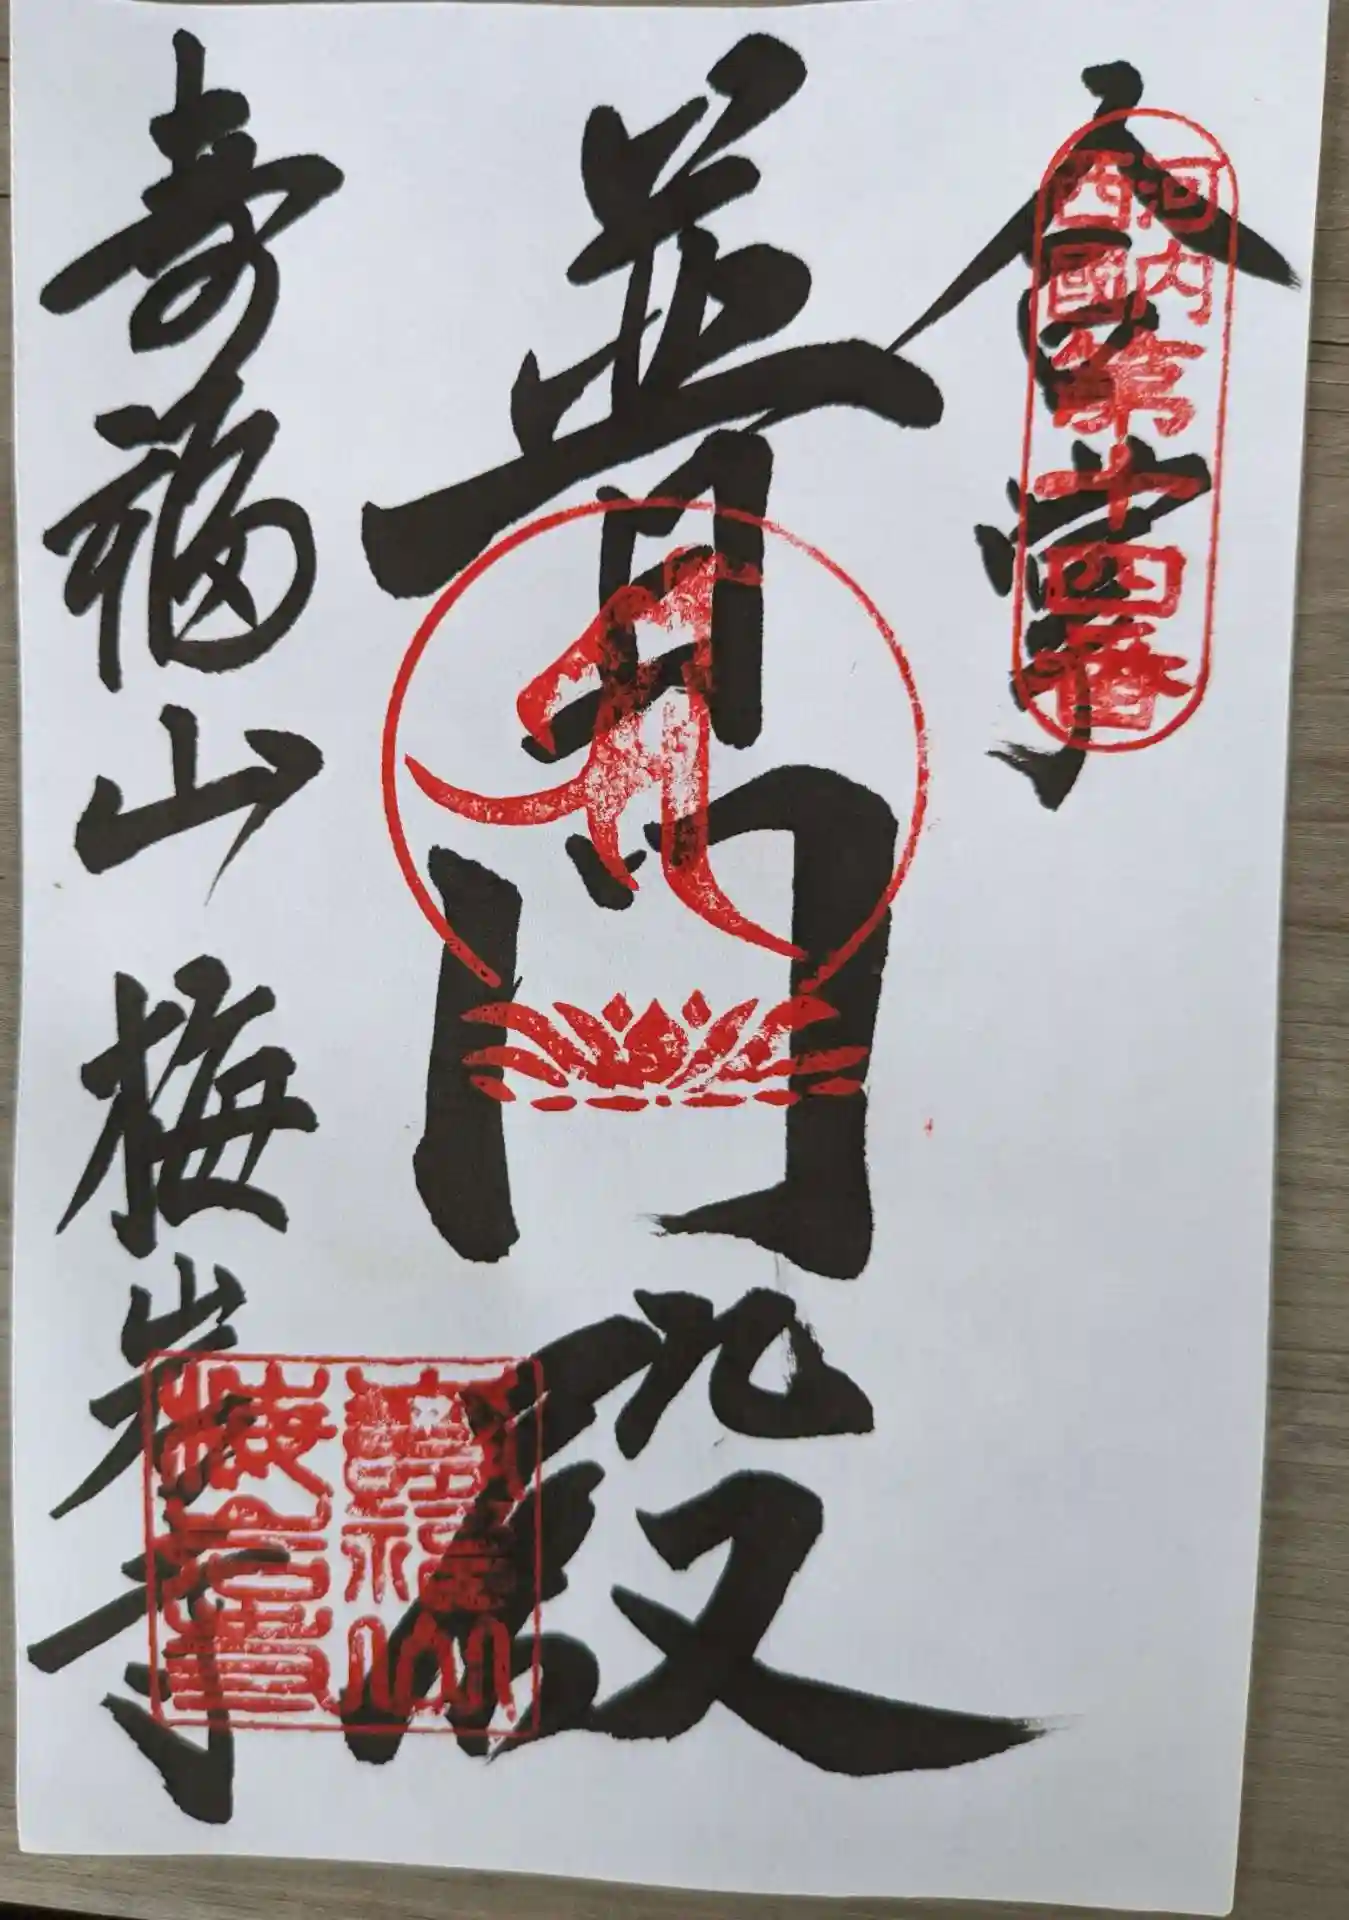 河内
西國
第十四番
合掌
普門殿
寿福山 梅岩寺
壽福山
梅岩寺